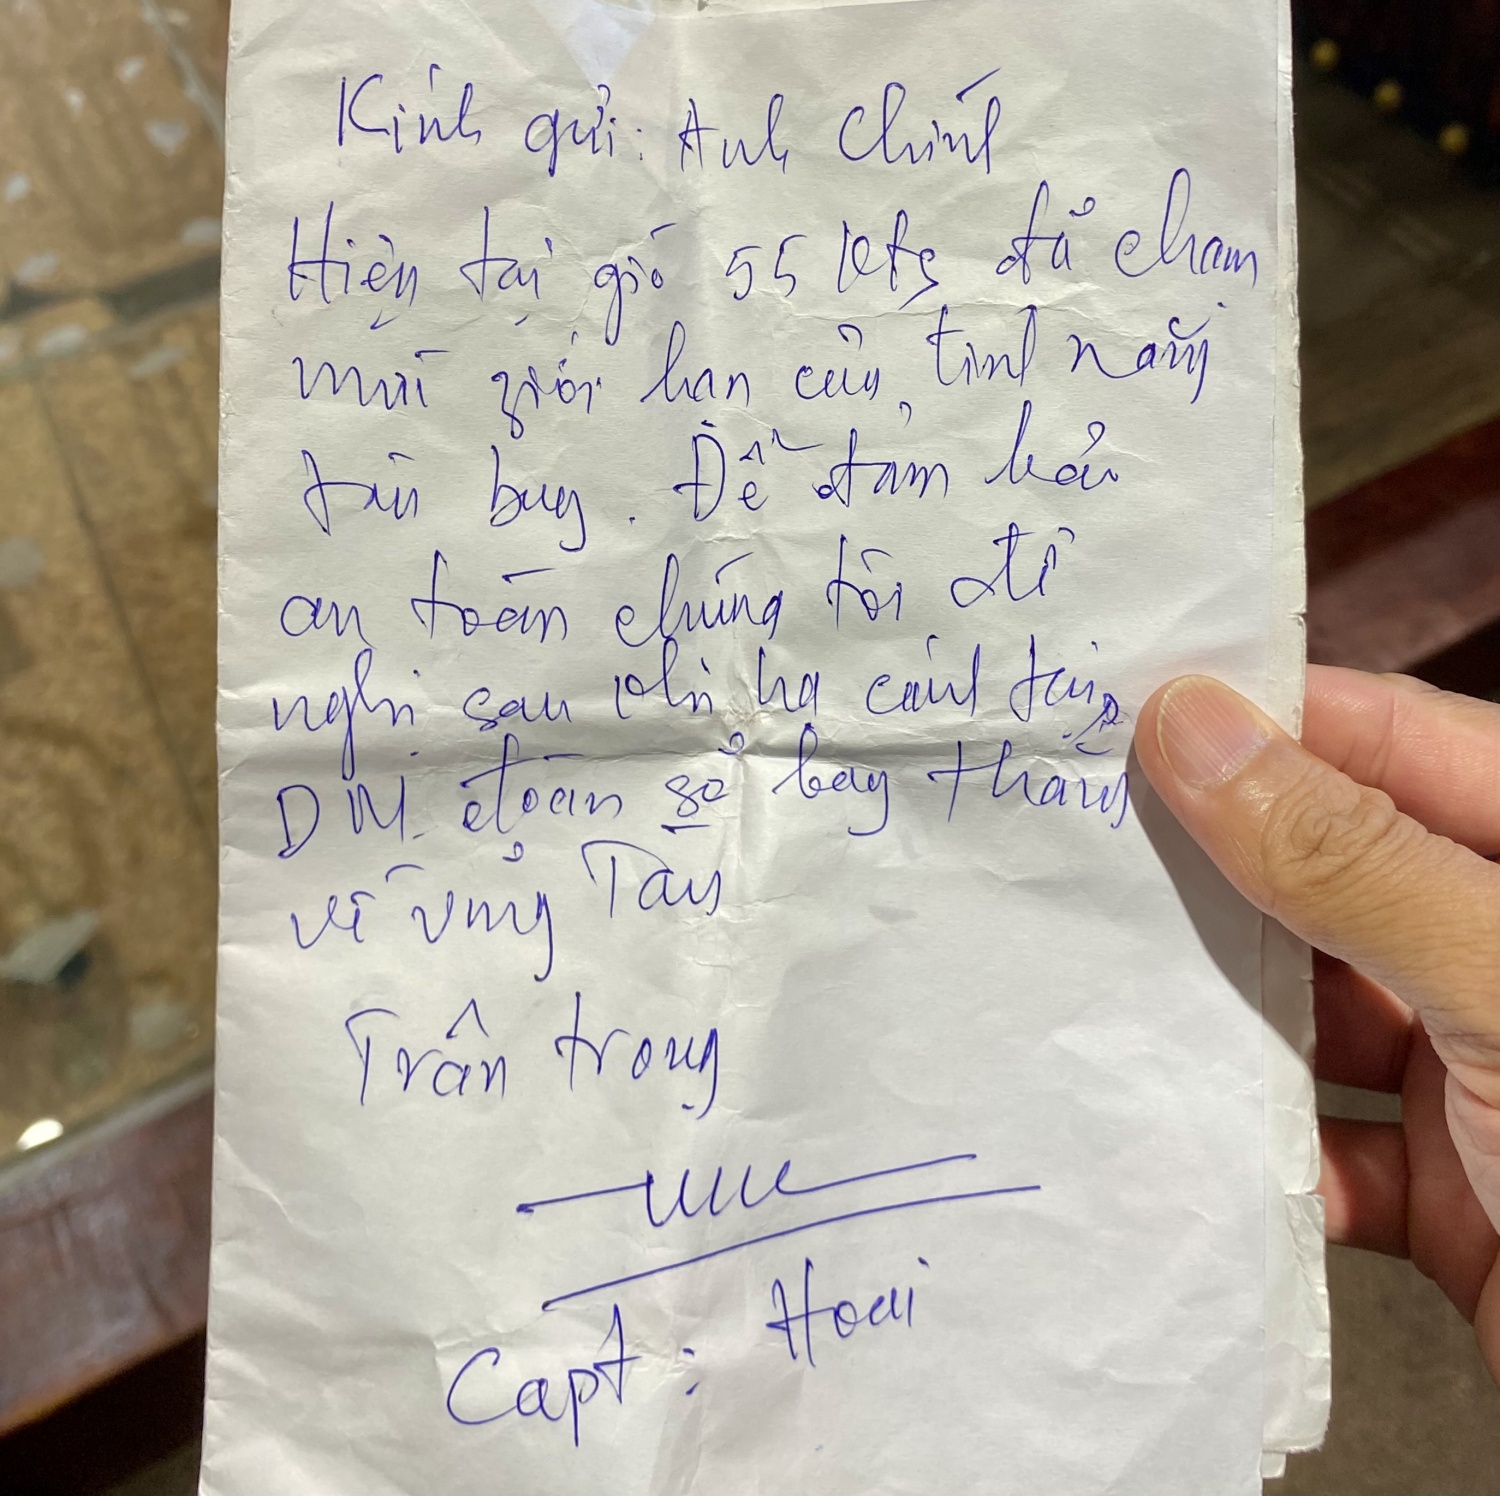 Kính gửi: Anh Chính
Hiện tại gió 55 kts đã chạm
mức giới hạn của tính năng
tàu bay. Để đảm bảo
an toàn chúng tôi đề
nghị sau khi hạ cánh tại
DM. đoàn sẽ bay thẳng
về Vũng Tàu
Trân trọng
Capt: Hoai